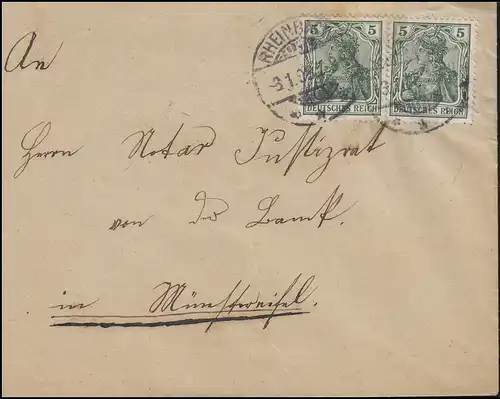 5 5 5 5
RHEINB
-3.1.0
DEUTSCHES REICH DEUTSCHES REICH
An
Herrn Notar Justizrat
von der Bank.
in Münstereifel.